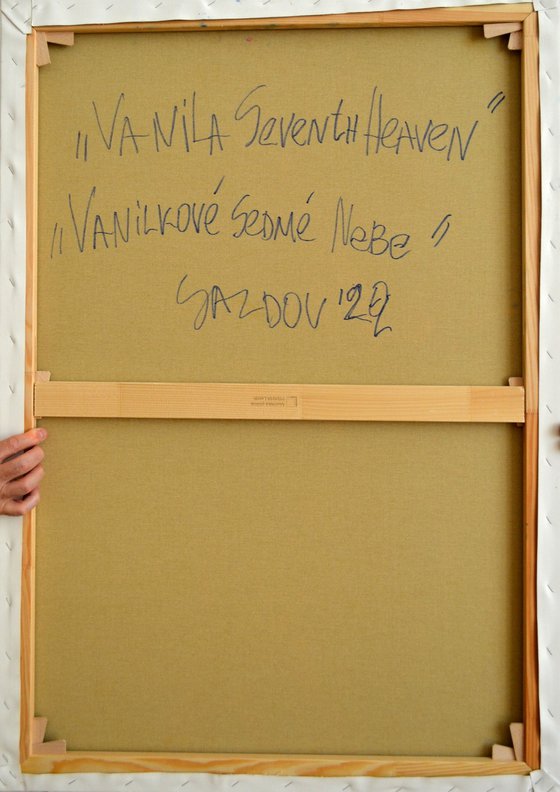 „VANILA SEVENTH HEAVEN"
„VANILKOVÉ SEDMÉ NEBE"
SAZDOV '22